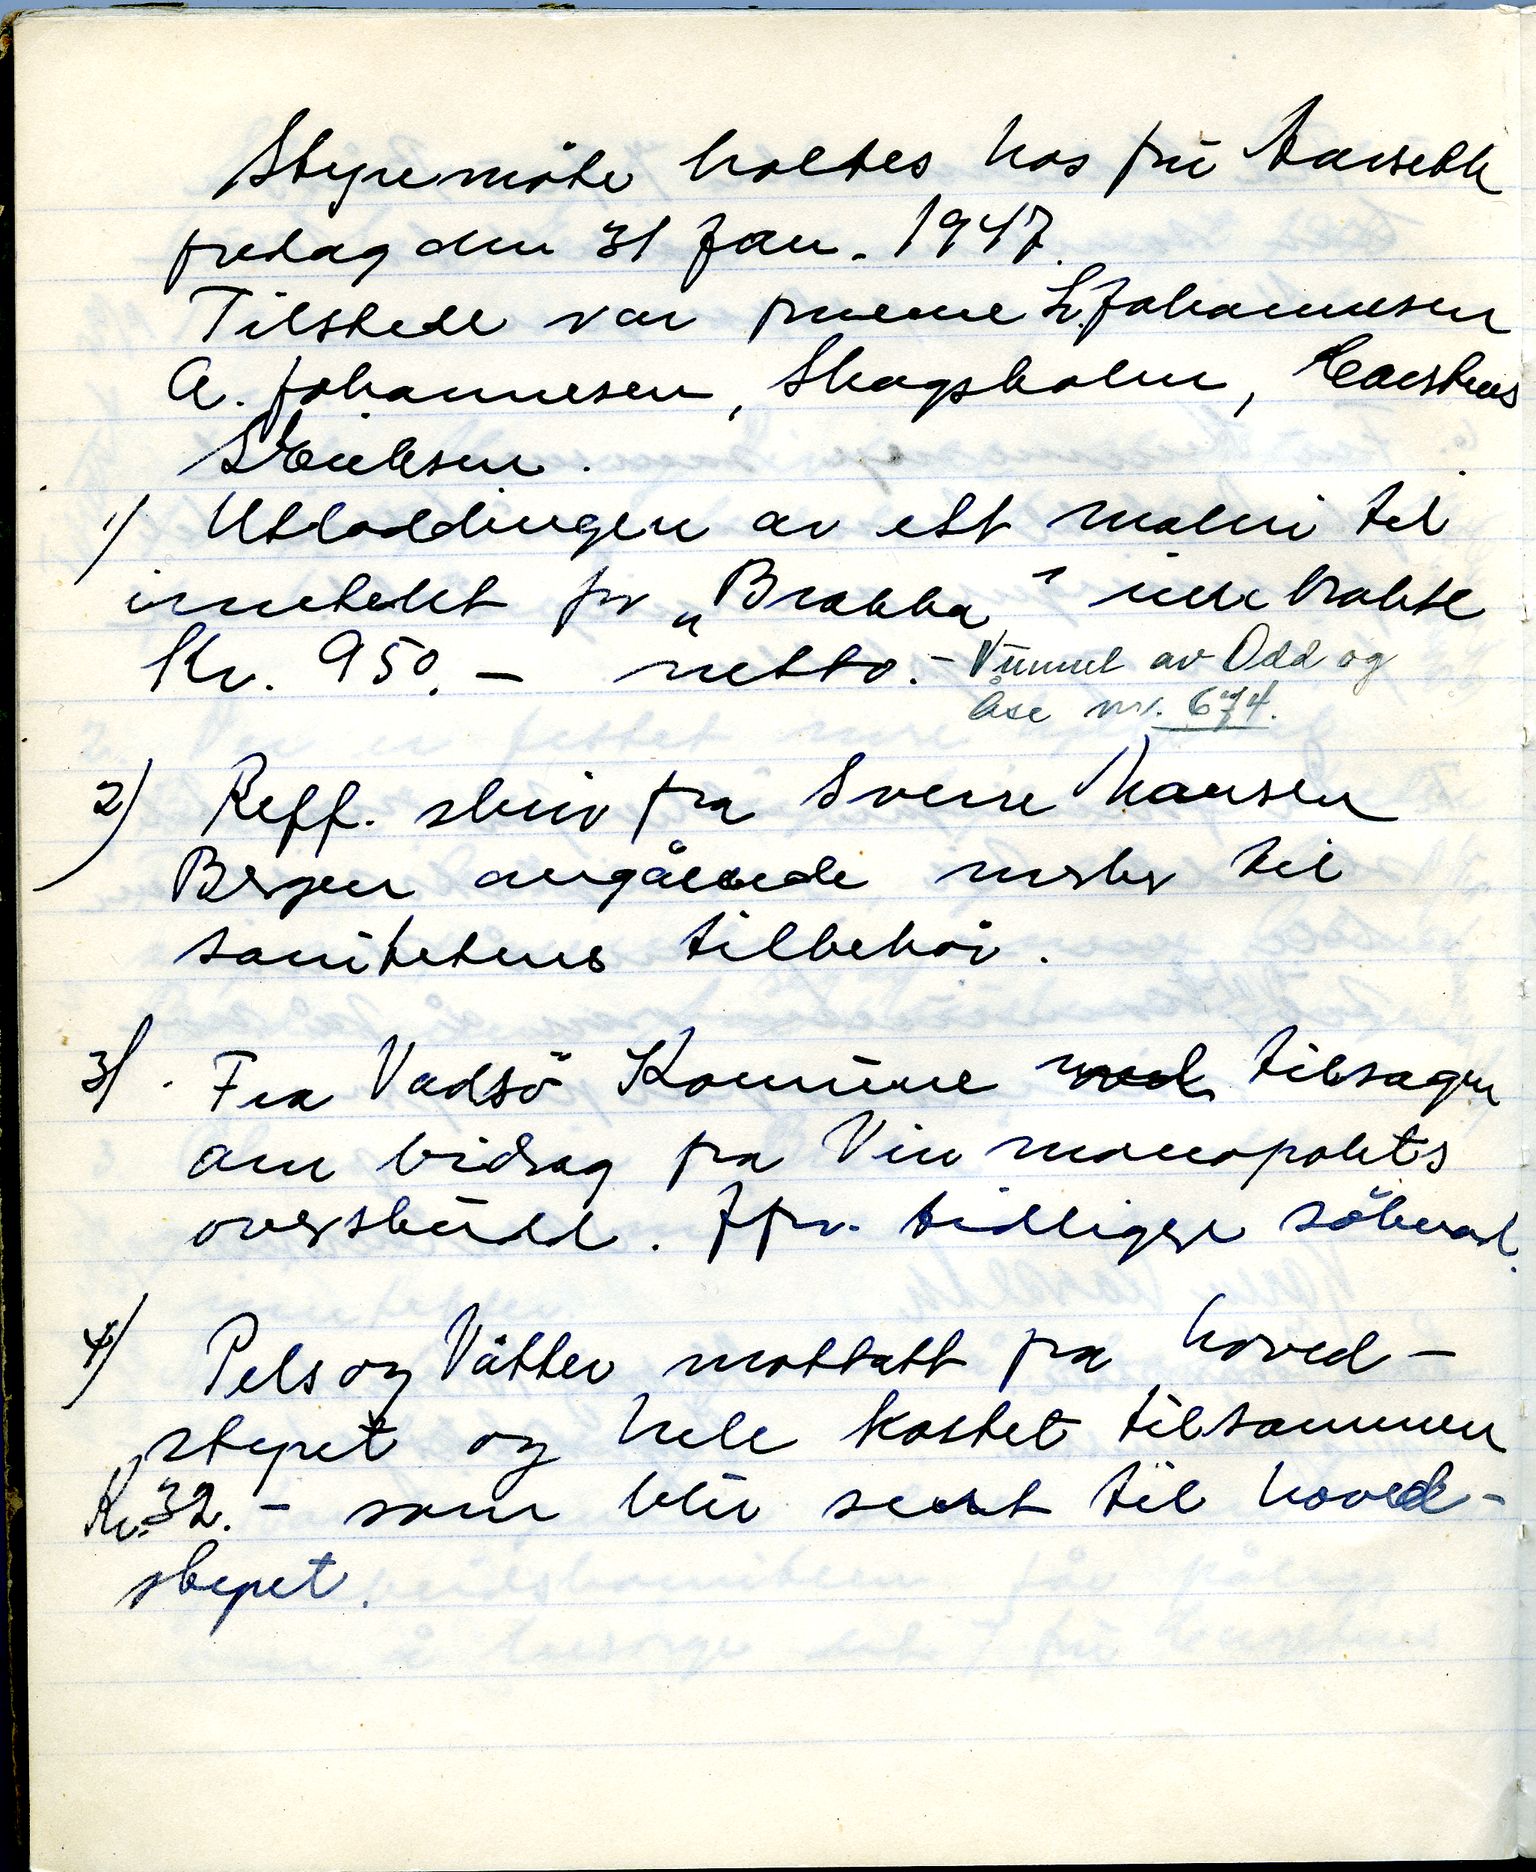 Styremöte holtes hos frü Aarseth
fredag den 31 Jan. 1947.
Tilstede var fruene L. Johannesen
A. Johannesen, Skogsholm, Carstens
Eriksen.
1) Utloddingen av ett maleri til
inntekt for „Brakka" innbrakte
Kr. 950.- netto. - Vünnet av Odd og
Åse nr. 674.
2) Reff. skriv fra Sverre Hansen
Bergen angående merker til
sanitetens tilbehör.
3) Fra Vadsö Kommüne tilsagn
om bidrag fra Vinmonopolets
oversküdd. Jfr. tidligere söknad.
4) Pels og Våtter mottatt fra hoved-
styret og hele kostet tilsammen
Kr. 32.- som blir sent til hoved-
styret.